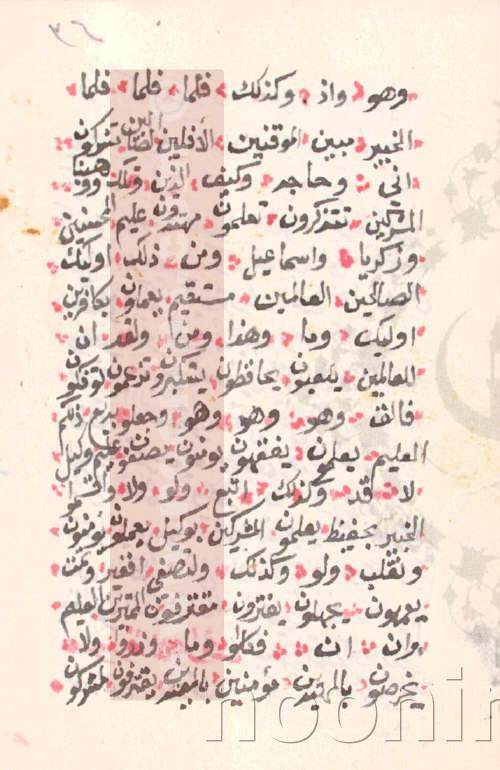 ٣٦
وهو واذ وكذلك فلما فلما فلما
الخبير مبين الموقنين الآفلين الضالين تشركون
اني وحاجه وكيف الذين وتلك ووهبنا
المشركين تتذكرون تعلمون مهتدون عليم المحسنين
وزكريا واسماعيل ومن ذلك اوليك
الصالحين العالمين مستقيم يعملون بكافرين
اوليك وما وهذا ومن ولقد ان
للعالمين يلعبون يحافظون يستكبرون تزعمون توفكون
فالق وهو وهو وهو وجعلو بديع ذلكم
العليم يعلمون يفقهون يومنون يصفون عليم وكيل
لا قد وكذلك اتبع ولو ولا واقسموا
الخبير بحفيظ يعلمون المشركين بوكيل يعملون يومنون
ونقلب ولو وكذلك ولتصغى افغير وتمت
يعمهون يجهلون يفترون مقترفون الممترين العليم
وان ان فكلوا وما وذروا ولا
يخرصون بالمهتدين مؤمنين بالمعتدين يقترفون لمشركون